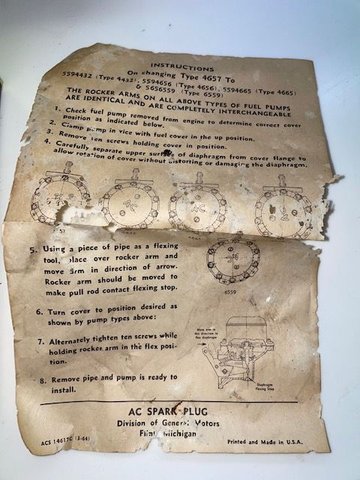 INSTRUCTIONS
On changing Type 4657 To
5594432 (Type 4432), 5594656 (Type 4656), 5594665 (Type 4665)
& 5656559 (Type 6559)
THE ROCKER ARMS ON ALL ABOVE TYPES OF FUEL PUMPS
ARE IDENTICAL AND ARE COMPLETELY INTERCHANGEABLE
1. Check fuel pump removed from engine to determine correct cover
position as indicated below.
2. Clamp pump in vice with fuel cover in the up position.
3. Remove ten screws holding cover in position.
4. Carefully separate upper surface of diaphragm from cover flange to
allow rotation of cover without distorting or damaging the diaphragm.
5. Using a piece of pipe as a flexing
tool, place over rocker arm and
move arm in direction of arrow.
Rocker arm should be moved to
make pull rod contact flexing stop.
6559
6. Turn cover to position desired as
shown by pump types above:
7. Alternately tighten ten screws while
holding rocker arm in the flex posi-
tion.
Move arm in
this direction to
flex diaphragm
8. Remove pipe and pump is ready to
install.
Diaphragm
Flexing Stop
AC SPARK PLUG
Division of General Motors
Flint, Michigan
Printed and Made in U.S.A.